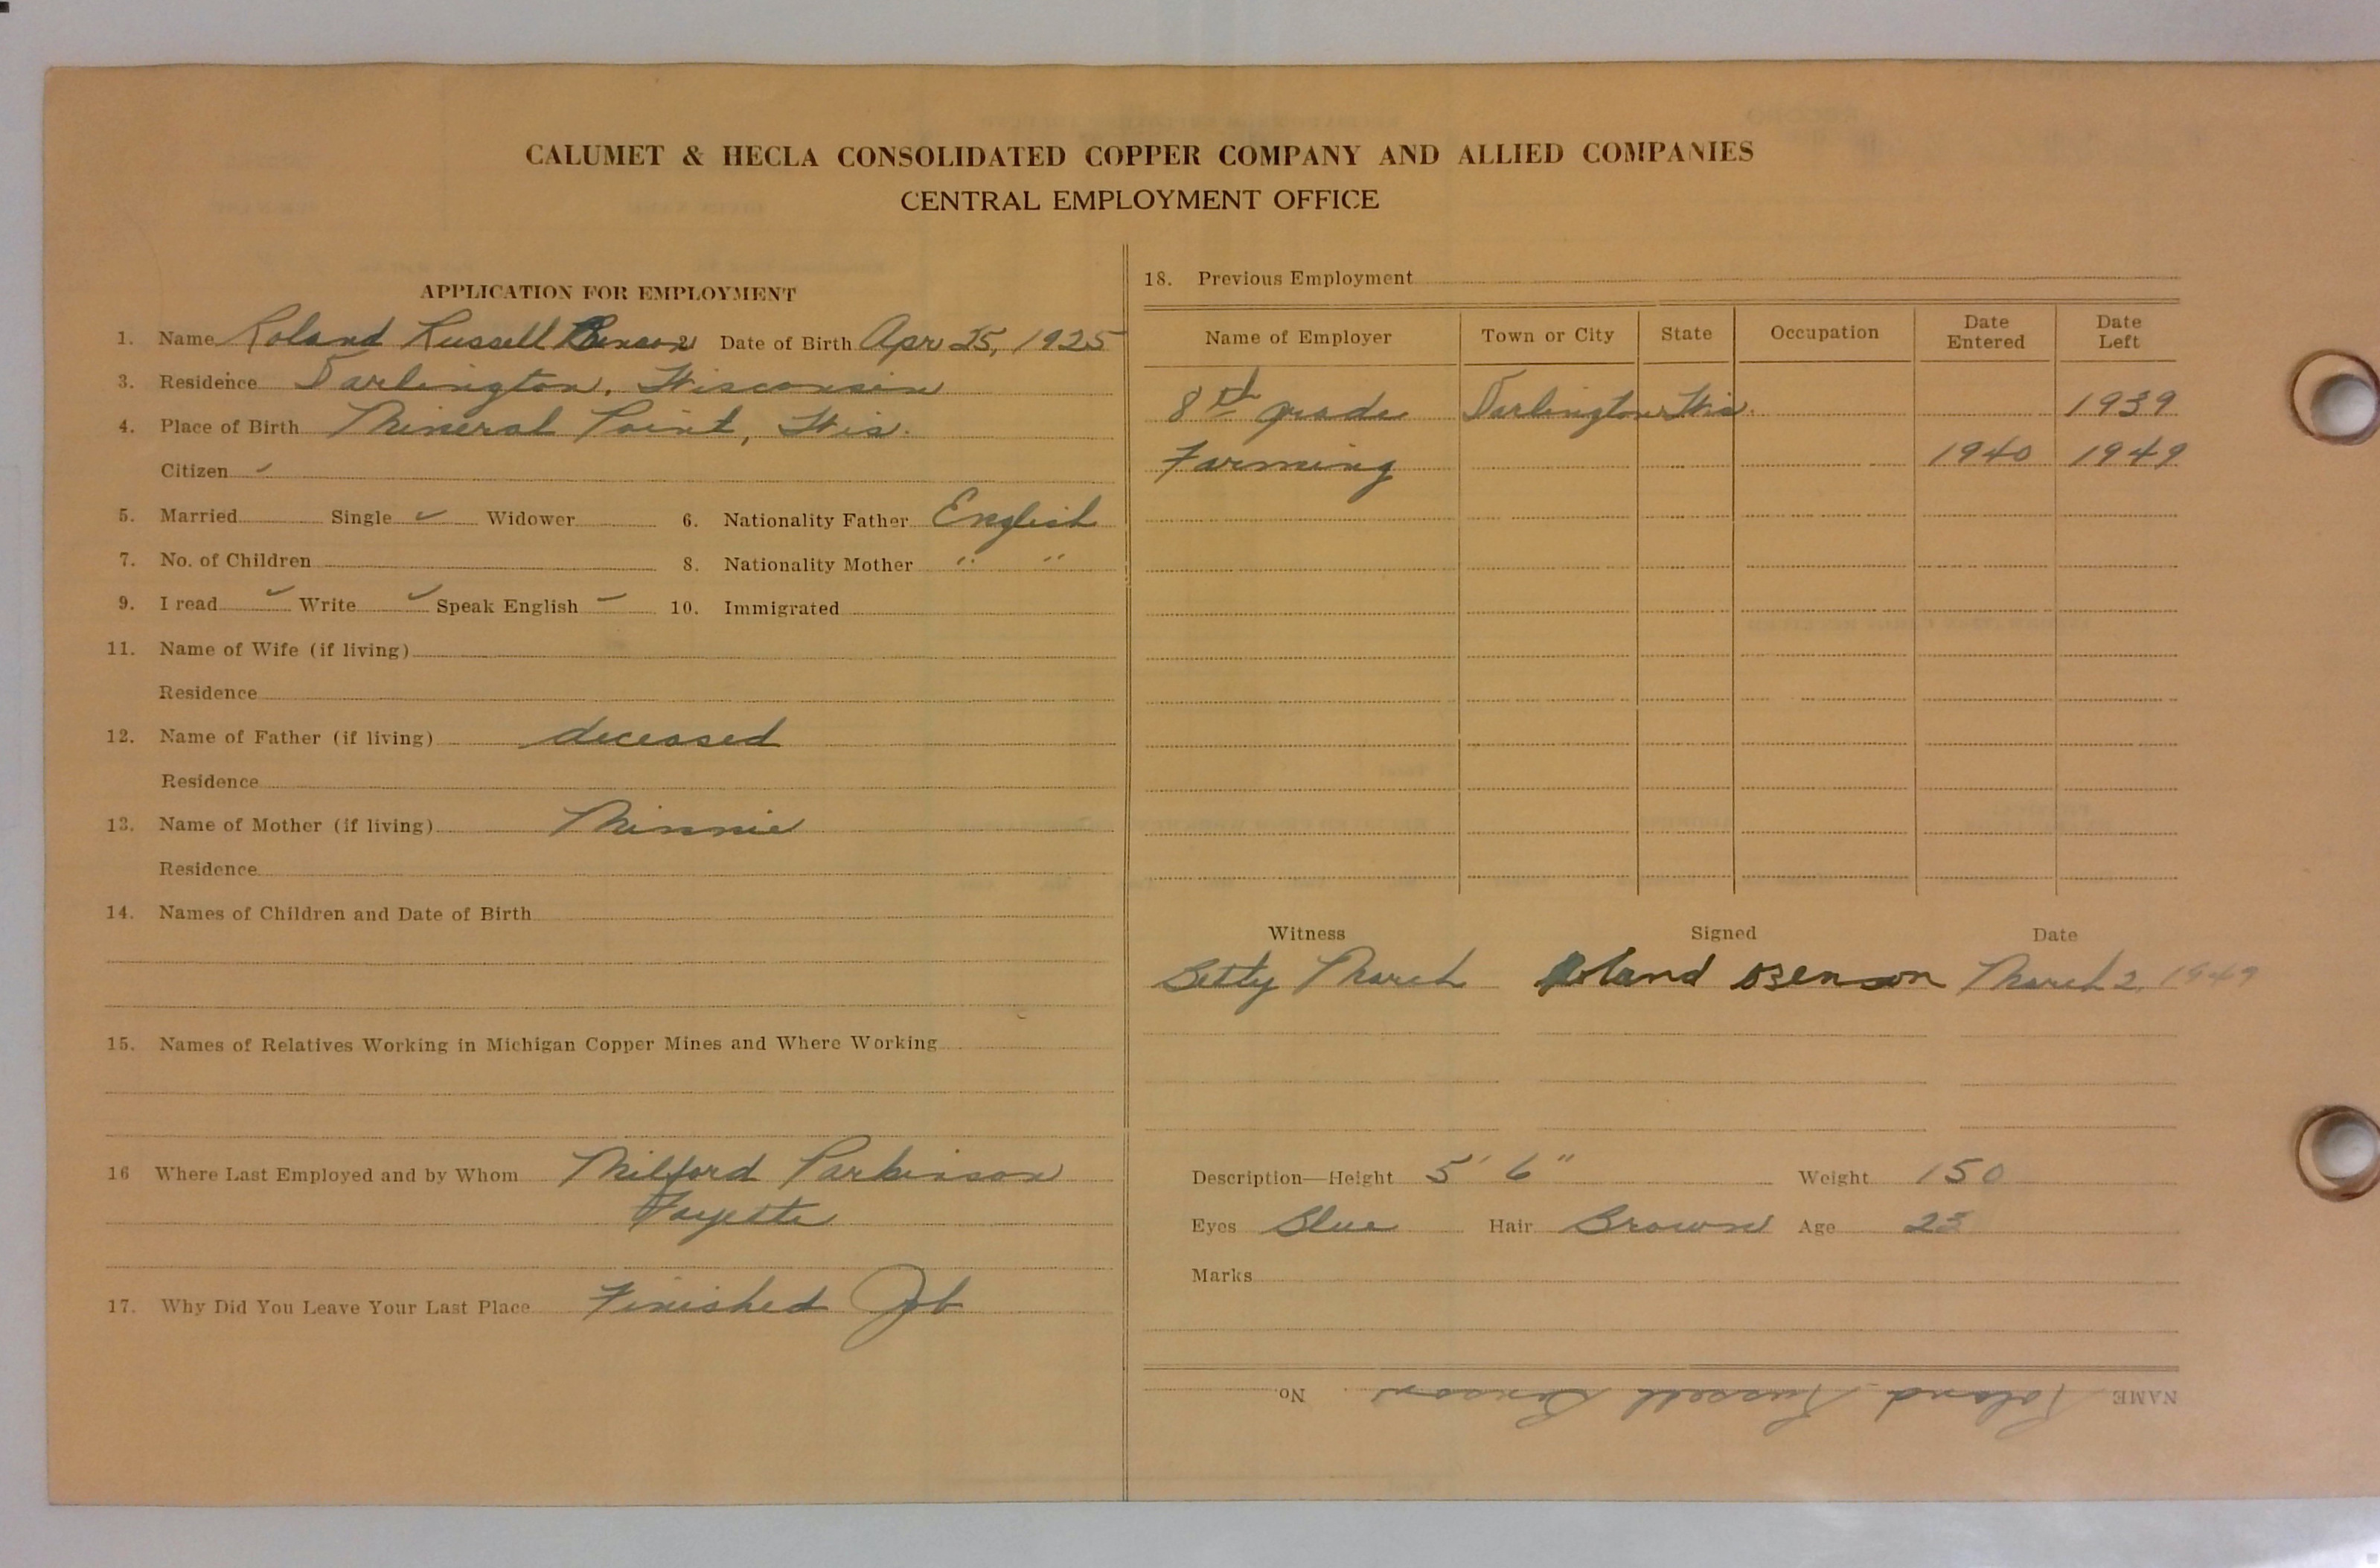 CALUMET & HECLA CONSOLIDATED COPPER COMPANY AND ALLIED COMPANIES
CENTRAL EMPLOYMENT OFFICE
APPLICATION FOR EMPLOYMENT
1. Name Roland Russell Benson 2. Date of Birth Apr 25, 1925
3. Residence Darlington, Wisconsin
4. Place of Birth Mineral Point, Wis.
Citizen ✓
5. Married Single ✓ Widower 6. Nationality Father English
7. No. of Children 8. Nationality Mother " "
9. I read ✓ Write ✓ Speak English ✓ 10. Immigrated
11. Name of Wife (if living)
Residence
12. Name of Father (if living) deceased
Residence
13. Name of Mother (if living) Minnie
Residence
14. Names of Children and Date of Birth
15. Names of Relatives Working in Michigan Copper Mines and Where Working
16 Where Last Employed and by Whom Milford Parkinson
Fayette
17. Why Did You Leave Your Last Place Finished Job
18. Previous Employment
Name of Employer Town or City State Occupation Date Entered Date Left
8th grade Darlington Wis. 1939
Farming 1940 1949
Witness Signed Date
Betty March Roland Benson March 2, 1949
Description—Height 5' 6" Weight 150
Eyes Blue Hair Brown Age 23
Marks
NAME Roland Russell Benson No.